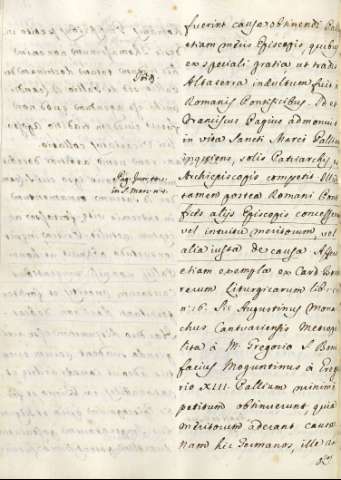 fuerint causæ obtinendi Pall
etiam meris Episcopis, quibus
ex speciali gratia ut tradit
Altaserra indultum fuit à
Romanis Pontificibus. Id et
Franciscus Pagius admonuit
in vita Sancti Marci Pallium
inquiens, solis Patriarchis, et
Archiepiscopis competit. Illud
tamen postea Romani Ponti
fices alijs Episcopis concesserunt
vel intuitu meritorum, vel
alia iusta de causa. Affert
etiam exempla ex Card. Bona
rerum Liturgicarum lib. 1. c.
n. 16. St. Augustinus Mona
chus Cantuariensis Metropo
lita à M. Gregorio S. Boni
facius Moguntinus à Grego
rio Pallium minime
petitum obtinuerunt, quia
meritorum aderant causæ
nam hic Germanos, ille An
in S. Marc. n. 4.